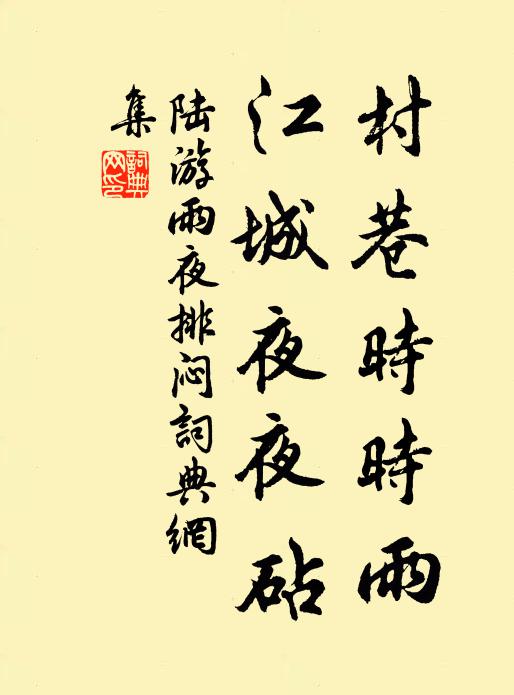 村巷時時雨
江城夜夜砧
陆游雨夜排闷詞典網
集
詞典網印